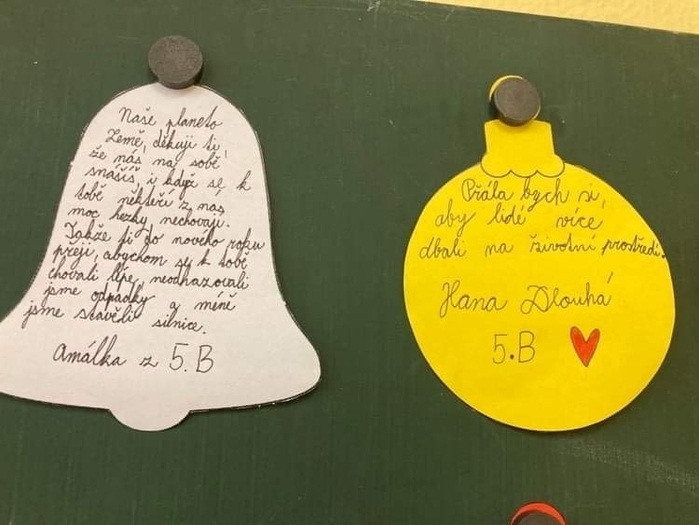 Naše planeto
Země, děkuji ti,
že nás na sobě
snášíš, i když se k
tobě někteří z nás
moc hezky nechovají.
Takže ti do nového roku
přeji, abychom se k tobě
chovali lépe, neodhazovali
jsme odpadky a méně
jsme stavěli silnice.
Amálka z 5.B
Přála bych si,
aby lidé více
dbali na životní prostředí.
Hana Dlouhá
5.B